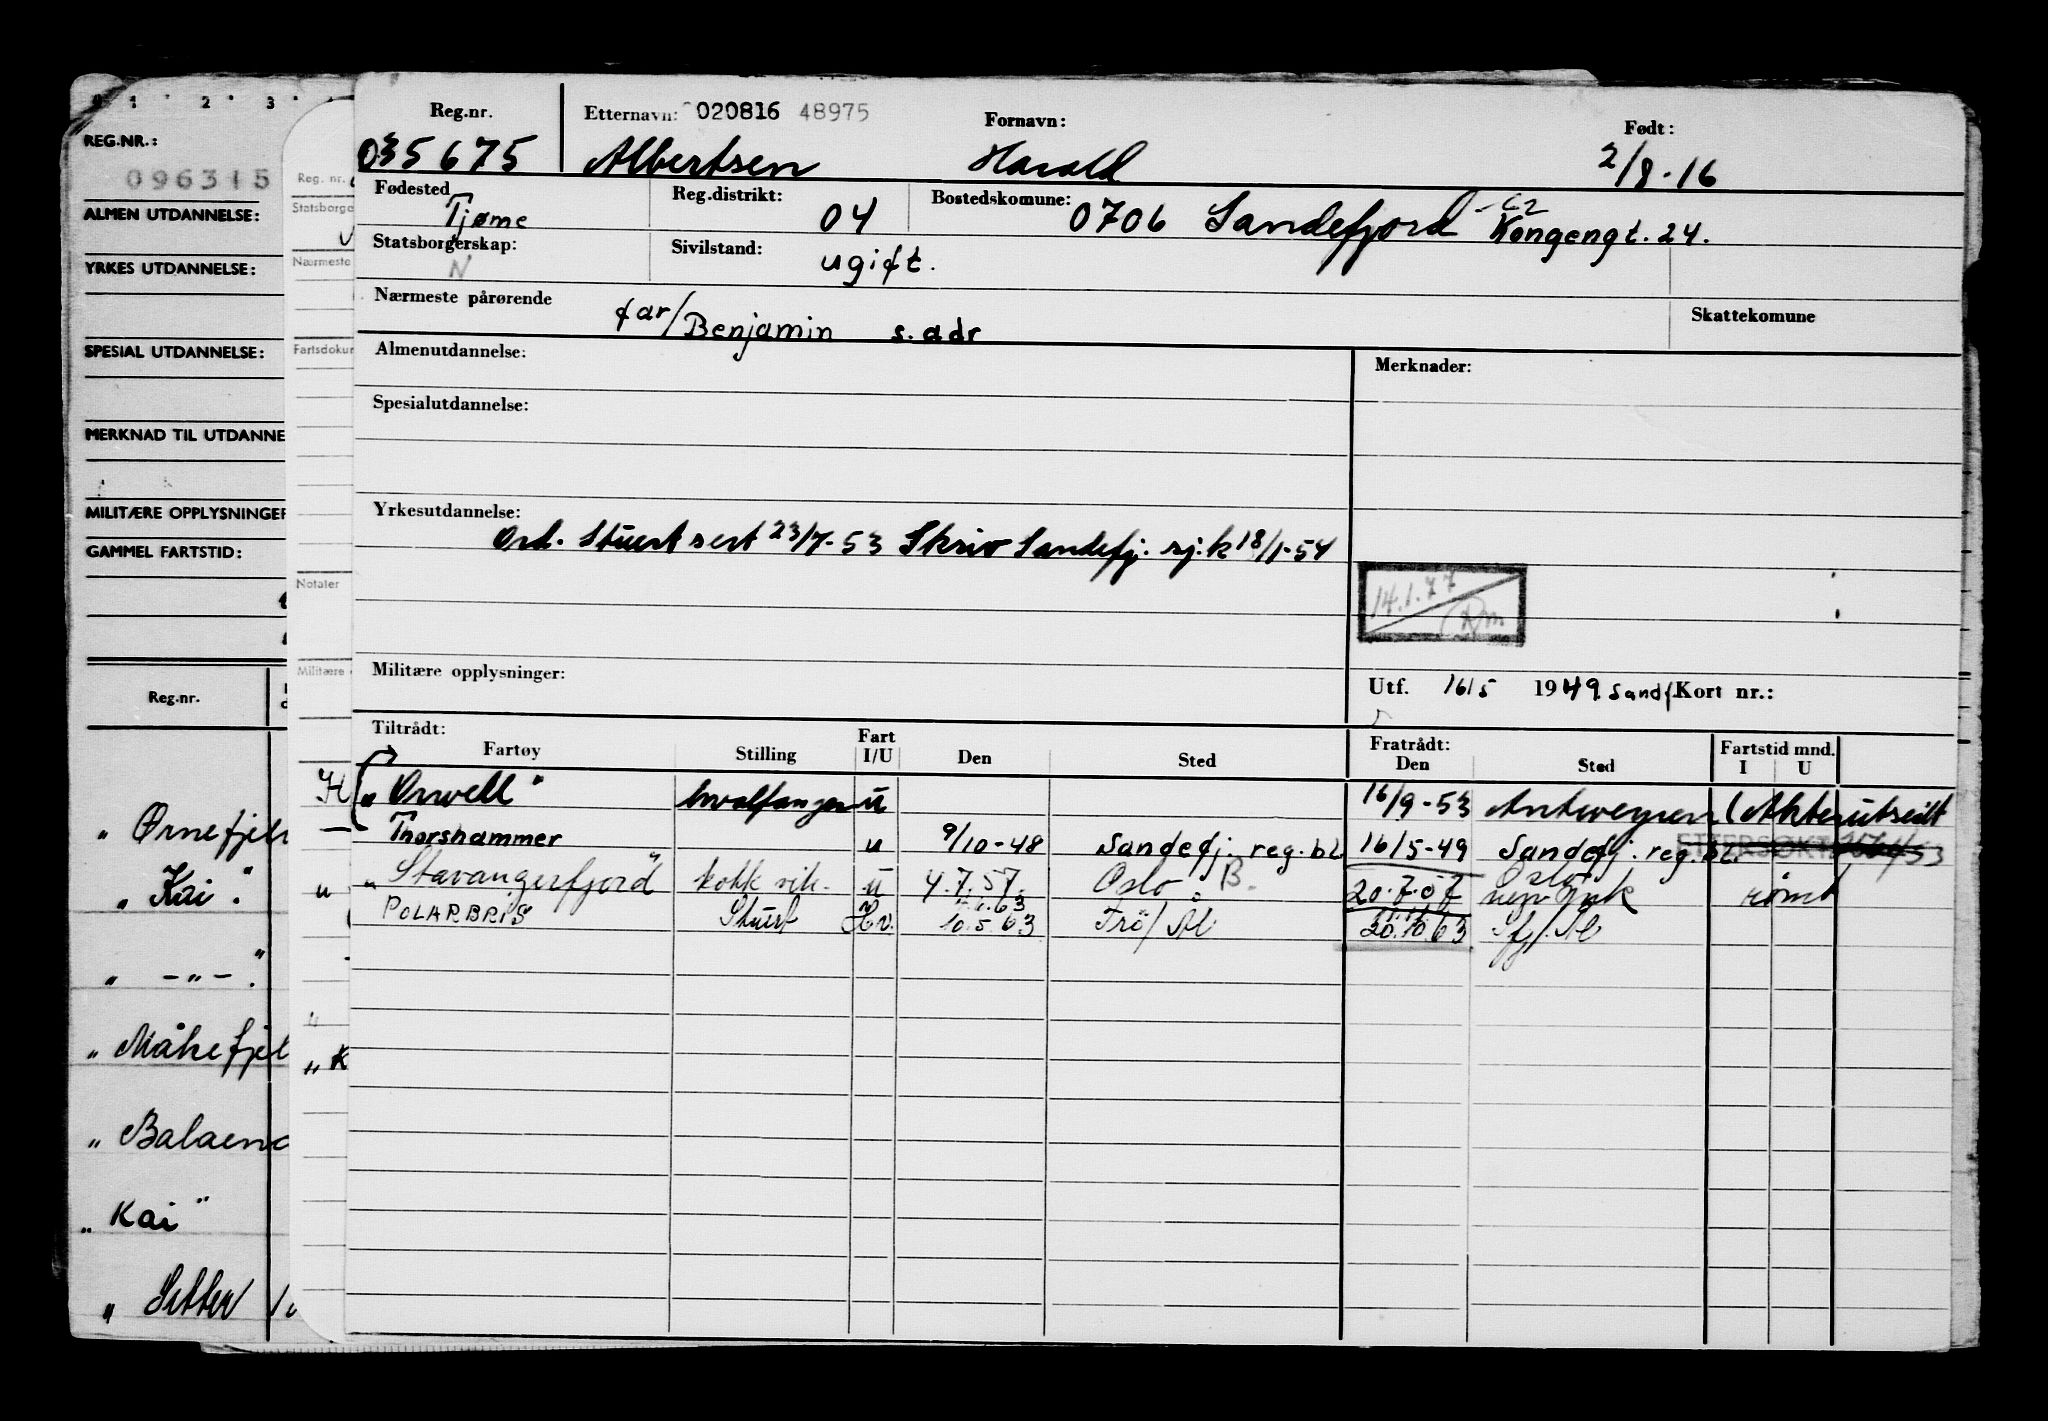 0 1 2 3
REG.NR.:
096315
ALMEN UTDANNELSE:
YRKES UTDANNELSE:
SPESIAL UTDANNELSE:
MERKNAD TIL UTDANNE
MILITÆRE OPPLYSNINGER
GAMMEL FARTSTID:
Reg.nr.
„ Ørnefjel
„ Kai".
„ —„— ".
„ Måkefjel
„ Balaena
„ Kai"
„ Sitter
Reg. nr.
Statsborge
Nærmeste
Fartsdokur
Notater
Militære
„ K
Reg.nr. Etternavn: 020816 48975 Fornavn: Født:
035675 Albertsen Harald 2/8-16
Fødested Tjøme Reg.distrikt: 04 Bostedskomune: 0706 Sandefjord Kongengt. 24.
Statsborgerskap: N Sivilstand: ugift.
Nærmeste pårørende far/Benjamin s. adr Skattekomune
Almenutdannelse: Merknader:
Spesialutdannelse:
Yrkesutdannelse:
Ord. Stuert sert 23/7-53 Skriv Sandefj. sj.k 18/1-54
14.1.77
Militære opplysninger: Utf. 16/5 1949 Sandf Kort nr.:
Tiltrådt: Fratrådt:
Fartøy Stilling Fart I/U Den Sted Den Sted Fartstid mnd. I U
„Orwell" hvalfanger u 16/9-53 Antwerpen (Akterutseilt
Thorshammer u 9/10-48 Sandefj. reg. bl 16/5-49 Sandefj. reg. bl. ETTERSØKT
„Stavangerfjord" kokk vik. u 4.7.57. Oslo B. 20.7.57 Oslo rømt
POLARBRIS Stuert 10.5.63 20.10.63